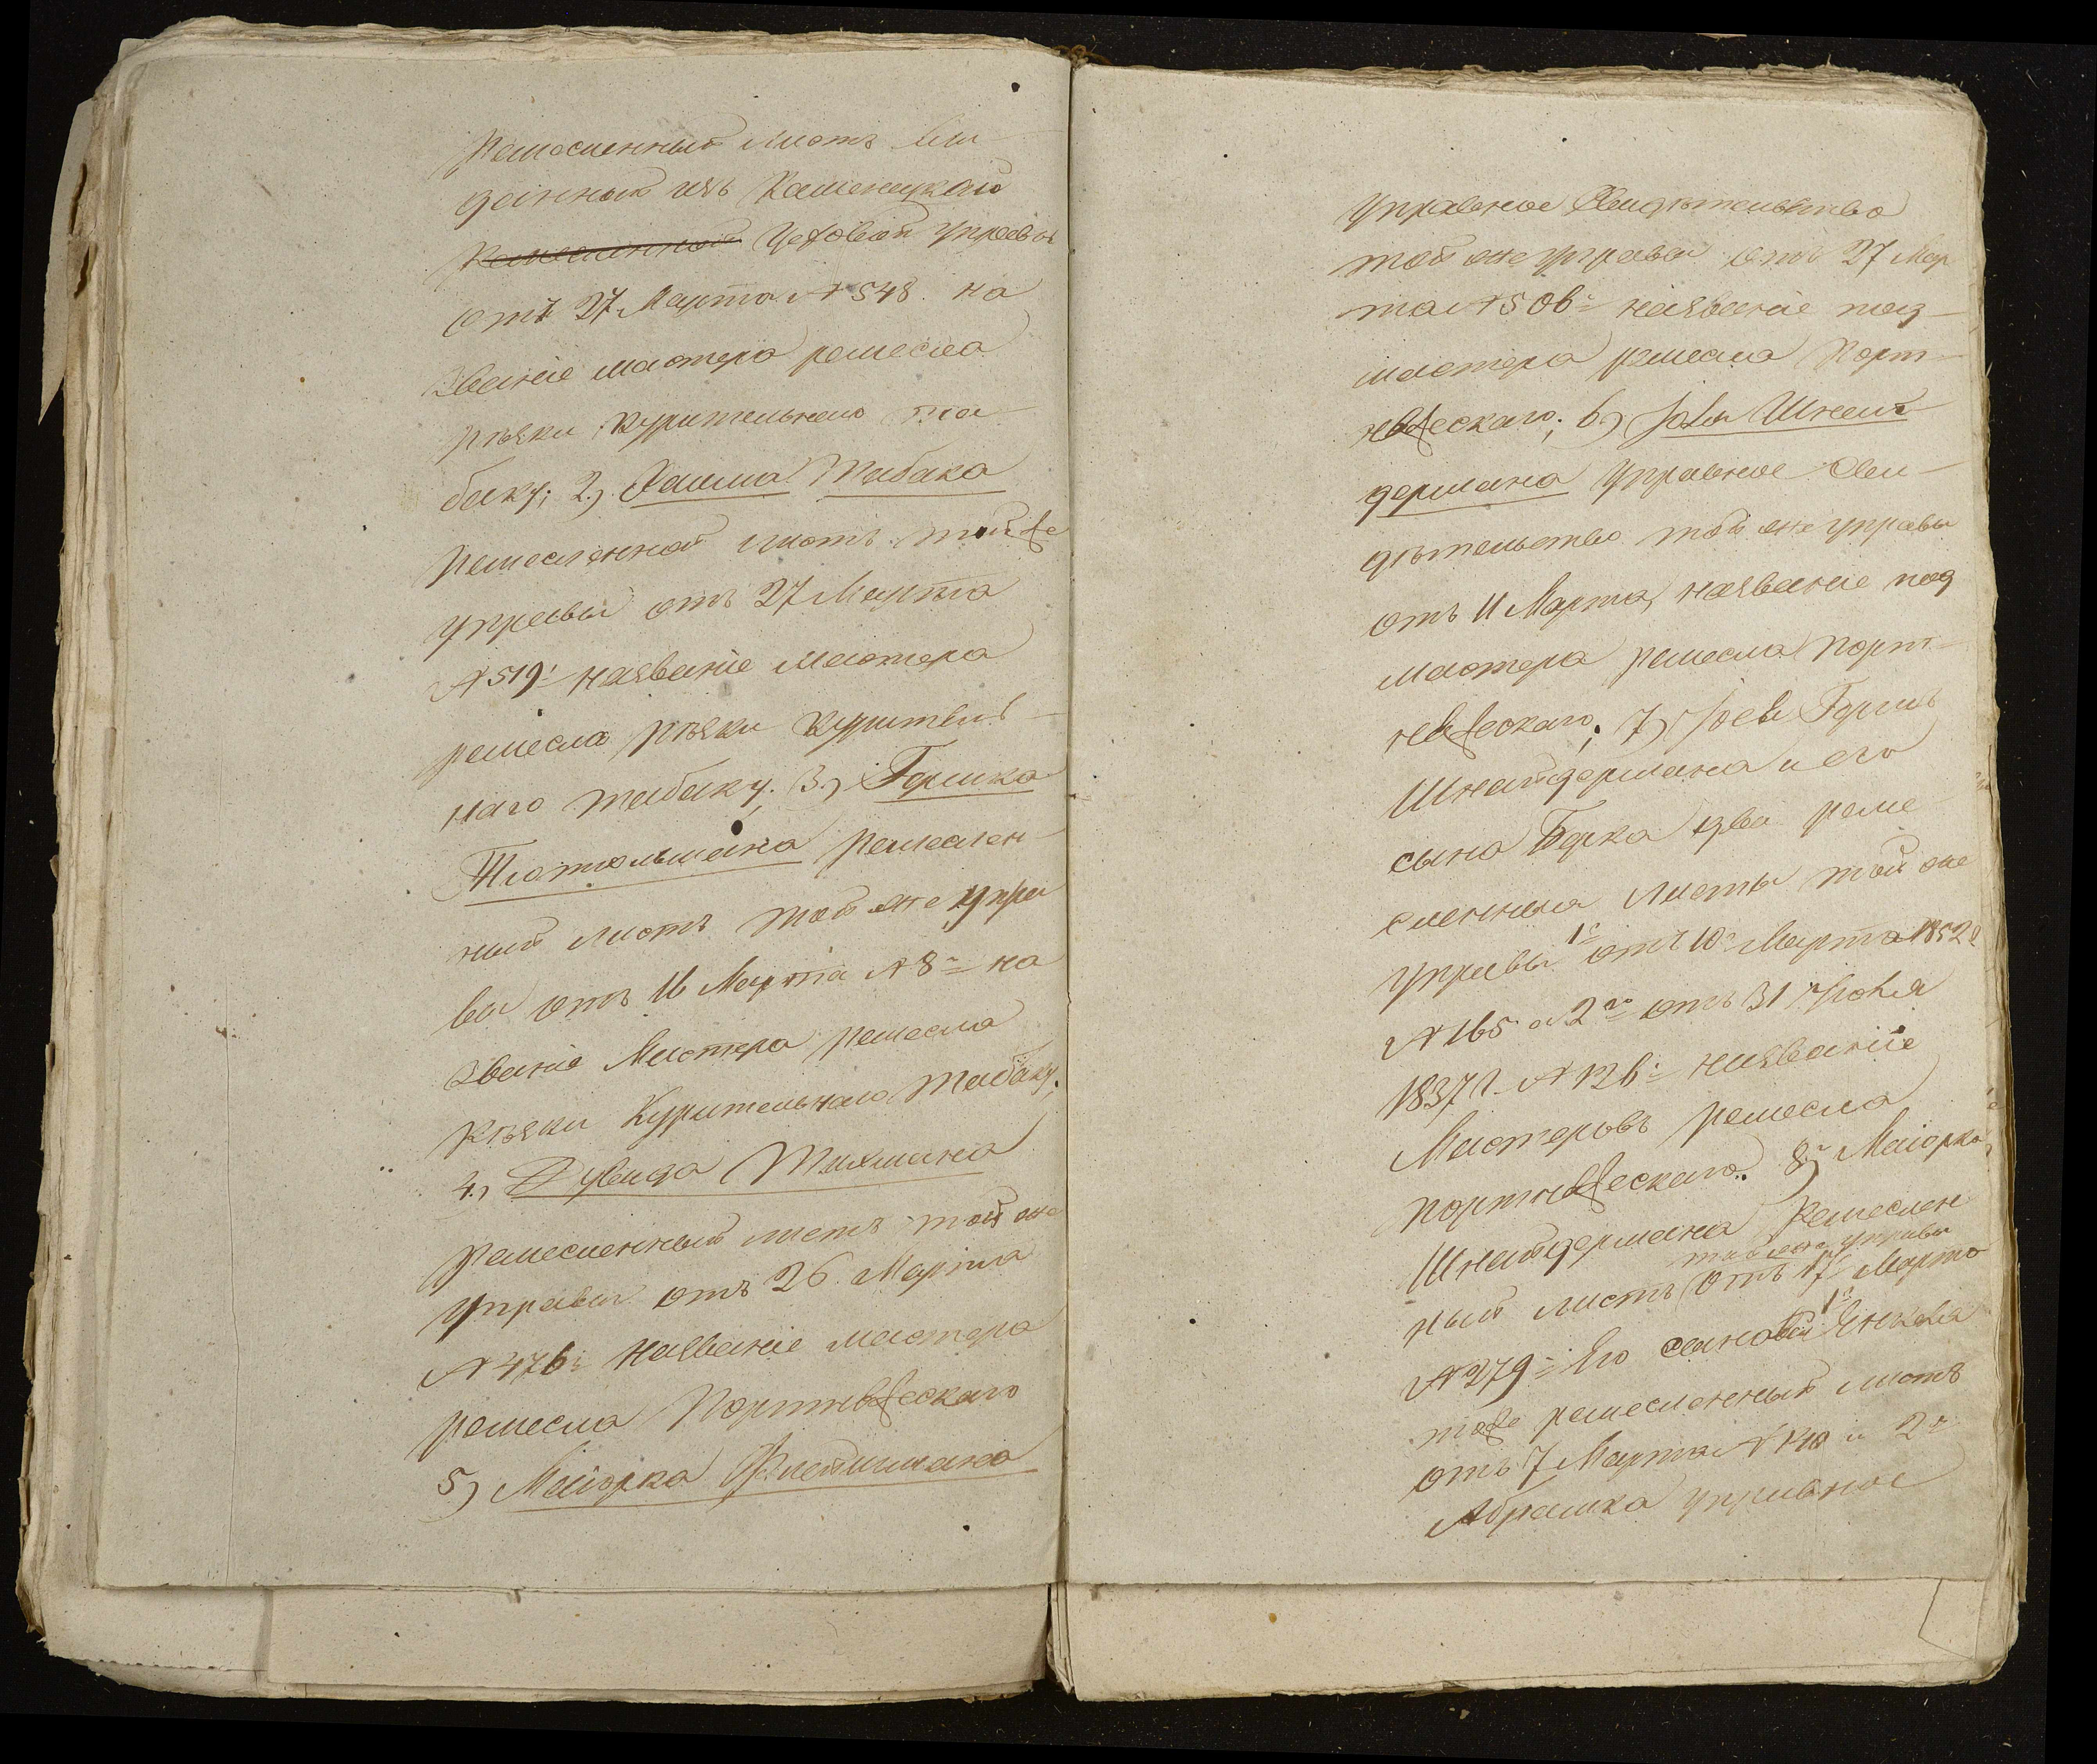 Ремесленный листъ вы-
данный изъ Каменецкой
Ремесленной Цеховой управы
отъ 27 Марта № 548 на
званіе мастера ремесла
рѣзки курительнаго та-
баку; 2.) Хаима Табака
Ремесленной листъ тойже
управы отъ 27 Марта
№ 519: на званіе мастера
ремесла рѣзки куритель-
наго табаку; 3.) Гершка
ремеслен-
ный листъ той же упра
вы отъ 16 Марта № 8 на
званіе Мастера ремесла
Рѣзки Курительнаго Табаку;
4.) Дувида Тихмана
Ремесленный листъ той же
управы отъ 26 Марта
№ 476: на званіе мастера
ремесла Портнческаго
5) Маіорка Флейшмана
Управное Свидѣтельство
той же управы отъ 27 Мар
та № 506: на званіе под-
мастера ремесла Порт-
нческаго; 6) Шнай-
дермана Управное Сви-
дѣтельство той же управы
отъ 11 Марта, на званіе под
мастера ремесла порт-
нческаго; 7) Гершъ
Шнайдермана и его
сына Берка два реме-
сленныя Листы той же
управы 1й отъ 10 Марта 1852 г
№ 165 а 2й отъ 31 Іюля
1837 г. № 126: на званіе
Мастеровъ ремесла
портнческаго. 8) Маіорка
Шнайдермана Ремеслен
той же управы
ный листъ отъ 17 Марта
№ 279: Его сыновей 1й Янкеля
тоже ремесленный листъ
отъ 7 Марта № 140 и 2й
Абрашка управное